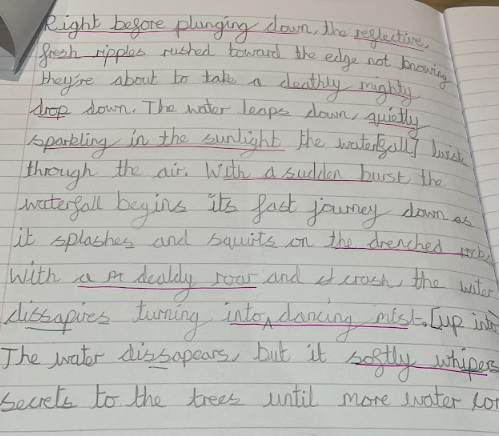 Right before plunging down, the reflective,
fresh ripples rushed toward the edge not knowing
they're about to take a deathly mighty
drop down. The water leaps down, quietly
sparkling in the sunlight the waterfall
through the air. With a sudden burst the
waterfall begins its fast journey down as
it splashes and squirts on the drenched rocks
With a deadly roar and crash, the water
dissapires turning into dancing mist. [up into
The water dissapears, but it softly whipers
secrets to the trees until more water